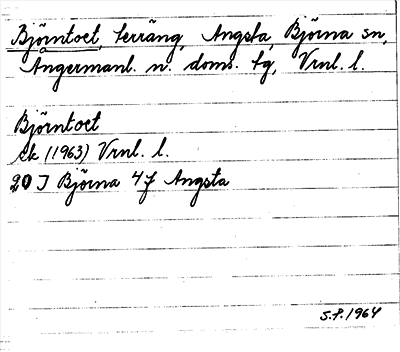 Björntoet, terräng, Angsta, Björna sn,
Ångermanl. n. doms. tg, Vrnl. l.
Björntoet
ek (1963) Vrnl. l.
20 J Björna 4f Angsta
S.P. 1964